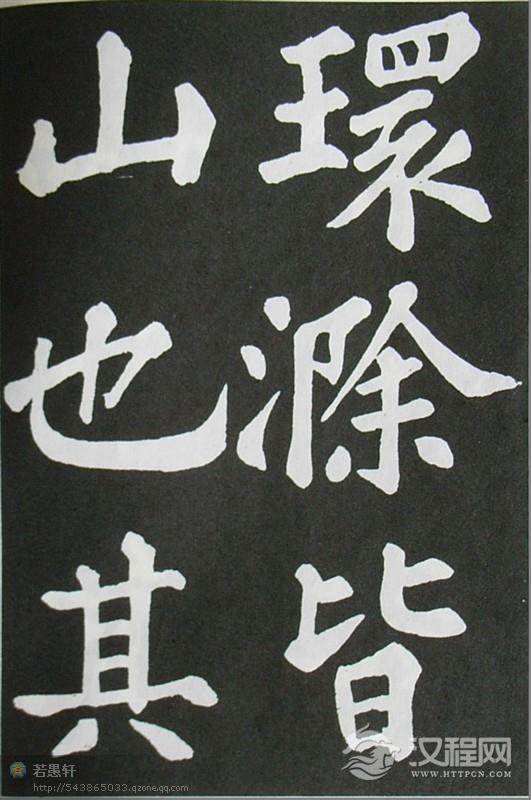 環滁皆
山也其
若愚轩
http://543865033.qzone.qq.com
汉程网
WWW.HTTPCN.COM